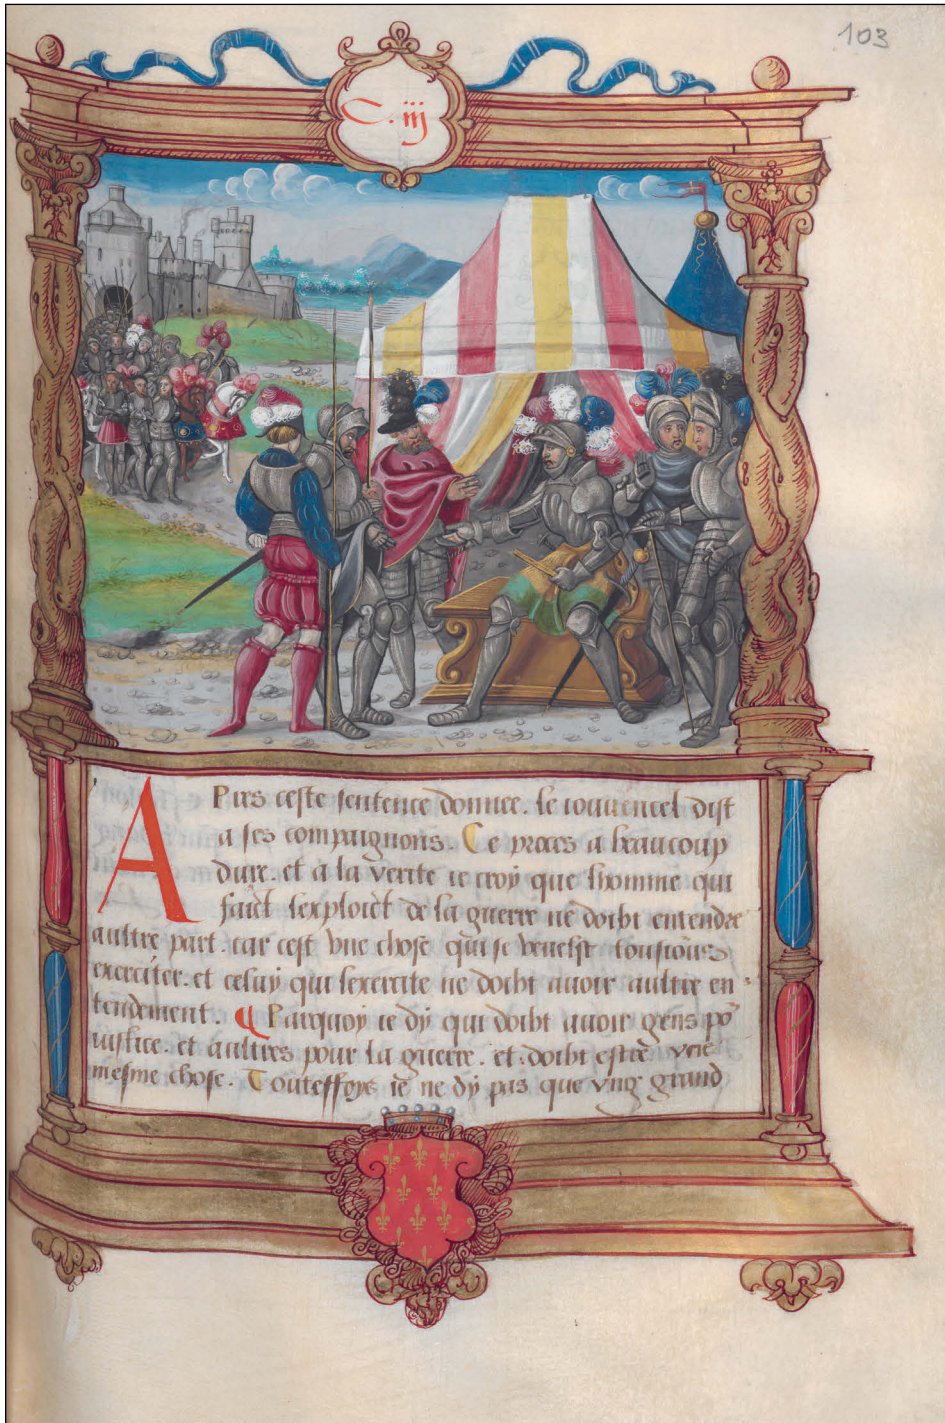 103
C. iij
APres ceste sentence donnee. le iouuencel dist
a ses compaignons. Ce proces a beaucoup
dure. et a la verite ie croy que lhomme qui
faict lexploict de la guerre ne doibt entendre
aultre part. car cest vne chose qui se veuelst tousiours
exerciter. et celuy qui lexercite ne doibt auoir aultre en-
tendement. ¶ Parquoy ie dy qui doibt auoir gens po
iustice. et aultres pour la guerre. et doibt estre vne
mesme chose. Touteffoys ie ne dy pas que vng grand